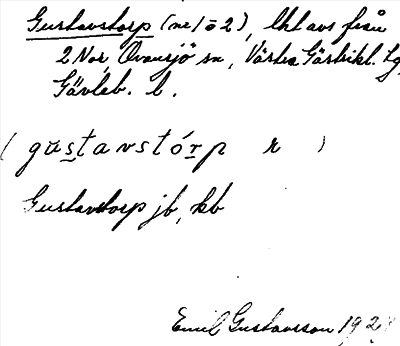 Gustavstorp (nr 1 o 2), lht avs från
2 Nor, Ovansjö sn, Västra Gästrikl.
Gävleb. l.
( gustavstórp r )
Gustavstorp jb, kb
Emil Gustavsson 192